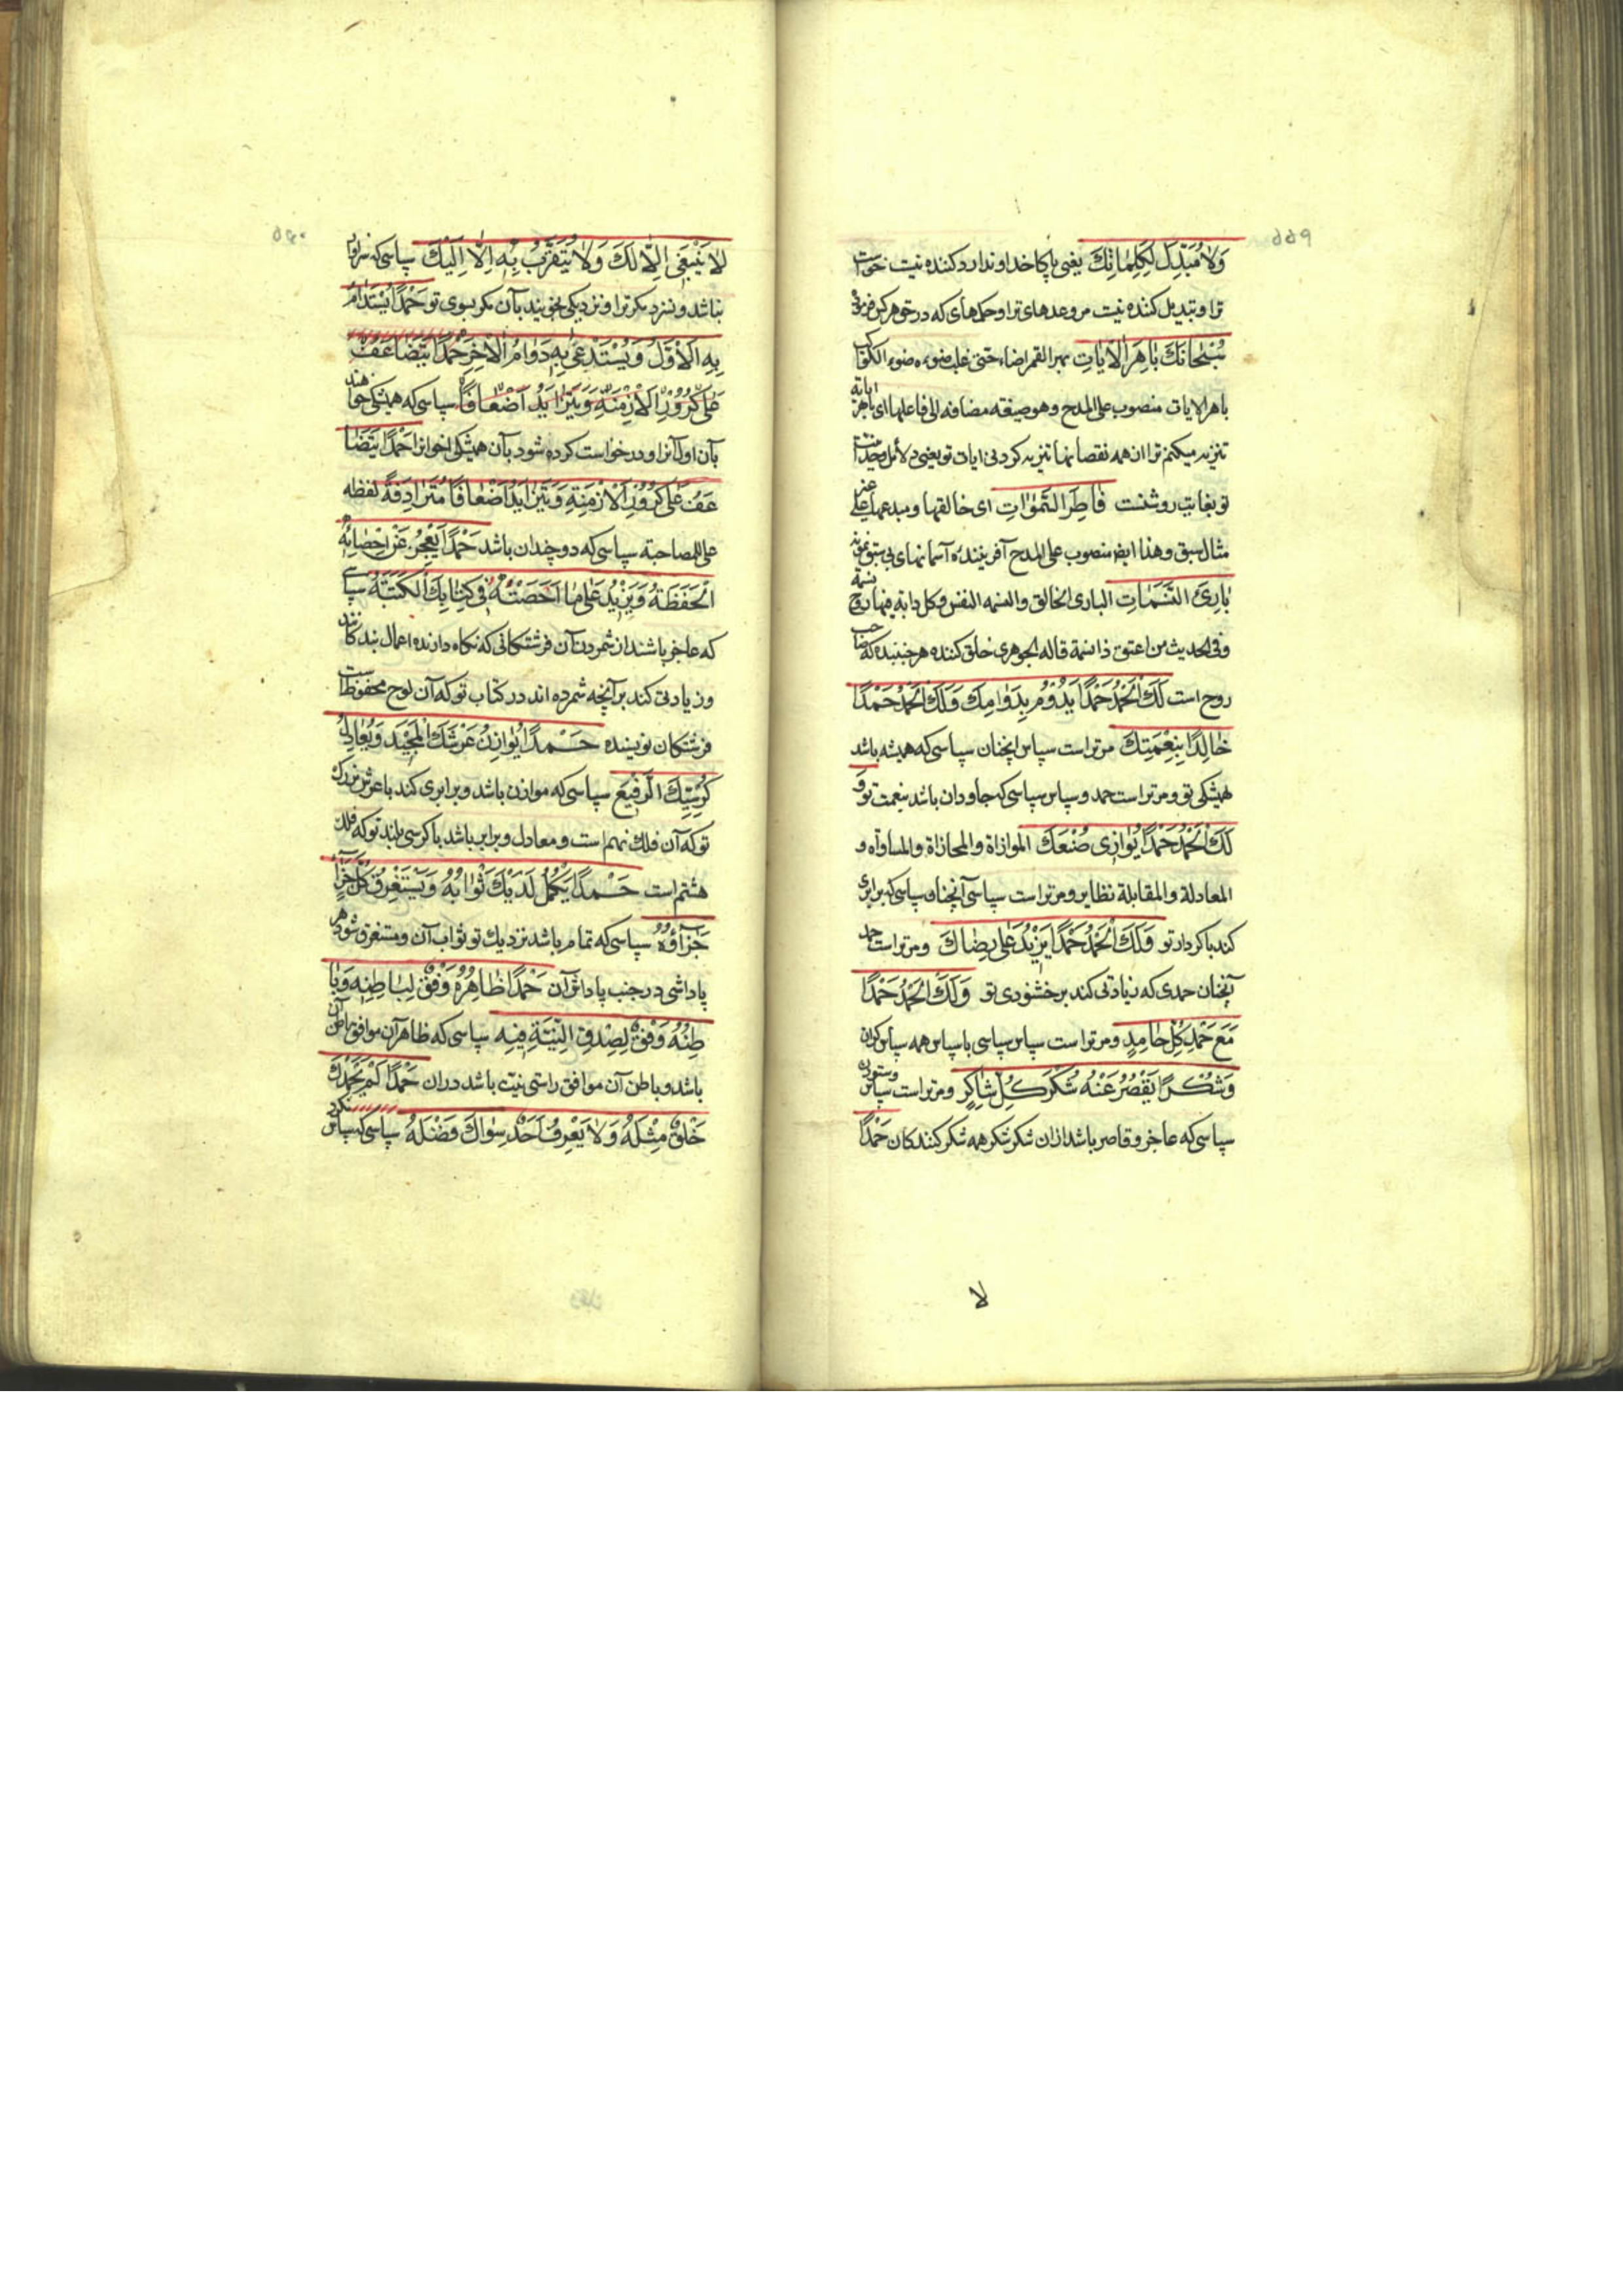 وَلَا مُبَدِّلَ لِكَلِمَاتِكَ یعنی پاکا خداوندا رد کننده نیست خواست
ترا و تبدیل کننده نیست مر وعدهای ترا و حکمهای که در حق هر کس فرمود
سُبْحَانَكَ بَاهِرَ الْآيَاتِ بهر القمر اضاء حتی غلب ضوءه ضوء الکواکب
باهر الایات منصوب علی المدح وهو صیغة مضافه الی فاعلها ای باهرة ایاته
تنزیه میکنم ترا از همه نقصانها تنزیه کردنی ایات تو یعنی دلائل وحدانیت
تو بغایت روشنست فَاطِرَ السَّمٰوَاتِ ای خالقها و مبدعها علی غیر
مثال سبق وهذا ایضا منصوب علی المدح آفریننده آسمانهای بی سبق نمونه
بَارِئَ النَّسَمَاتِ الباری الخالق والنسمه النفس وکل دابة فیها روح نسمة
وفی الحدیث من اعتق ذا نسمة قاله الجوهری خلق کننده هر جنبنده که صاحب
روح است لَكَ الْحَمْدُ حَمْدًا يَدُومُ بِدَوَامِكَ وَلَكَ الْحَمْدُ حَمْدًا
خَالِدًا بِنِعْمَتِكَ مر تراست سپاس انچنان سپاسی که همیشه باشد
همیشکی تو و مر تراست حمد و سپاس سپاسی که جاودان باشد بنعمت تو وَ
لَكَ الْحَمْدُ حَمْدًا يُوَازِي صُنْعَكَ الموازاة والمحازاة والمساواه و
المعادلة والمقابلة نظایر و مر تراست سپاسی آنچنان سپاسی که برابری
کند با کردار تو وَلَكَ الْحَمْدُ حَمْدًا يَزِيدُ عَلَى رِضَاكَ و مر تراست حمد
آنچنان حمدی که زیادتی کند بر خشنودی تو وَلَكَ الْحَمْدُ حَمْدًا
مَعَ حَمْدِ كُلِّ حَامِدٍ و مر تراست سپاس سپاسی با سپاس همه سپاس کویان
وَشُكْرًا يَقْصُرُ عَنْهُ شُكْرُ كُلِّ شَاكِرٍ و مر تراست سپاس
سپاسی که عاجز و قاصر باشد از ان شکر شکر همه شکر کنندکان حَمْدًا
لا
لَا يَنْبَغِي إِلَّا لَكَ وَلَا يُتَقَرَّبُ بِهِ إِلَّا إِلَيْكَ سپاسی که سزاوار
نباشد و نسزد مکر ترا و نزدیکی نجویند بآن مکر بسوی تو حَمْدًا يُسْتَدَامُ
بِهِ الْأَوَّلُ وَيُسْتَدْعَى بِهِ دَوَامُ الْآخِرِ حَمْدًا يَتَضَاعَفُ
عَلَى كُرُورِ الْأَزْمِنَةِ وَيَتَزَايَدُ أَضْعَافًا سپاسی که همیشکی خواهند
بآن اول آنرا و درخواست کرده شود بآن همیشکی اخر انرا حَمْدًا يَتَضَا
عَفُ عَلَى كُرُورِ الْأَزْمِنَةِ وَيَتَزَايَدُ أَضْعَافًا مُتَرَادِفَةً لفظه
علی للمصاحبة سپاسی که دو چندان باشد حَمْدًا يَعْجِزُ عَنْ إِحْصَائِهِ
الْحَفَظَةُ وَيَزِيدُ عَلَى مَا أَحْصَتْهُ فِي كِتَابِكَ الْكَتَبَةُ سپاسی
که عاجز باشند از شمردن آن فرشتکانی که نکاه دارنده اعمال بندکانند
و زیادتی کند بر آنچه شمرده اند در کتاب تو که آن لوح محفوظ است
فرشتکان نویسنده حَمْدًا يُوَازِنُ عَرْشَكَ الْمَجِيدَ وَيُعَادِلُ
كُرْسِيَّكَ الرَّفِيعَ سپاسی که موازن باشد و برابری کند با عرش بزرك
تو که آن فلك نهم است و معادل و برابر باشد با کرسی بلند تو که فلك
هشتم است حَمْدًا يَكْمُلُ لَدَيْكَ ثَوَابُهُ وَيَسْتَغْرِقُ كُلَّ جَزَاءٍ
جَزَاؤُهُ سپاسی که تمام باشد نزدیك تو ثواب آن و مستغرق شود هر
پاداشی در جنب پاداش آن حَمْدًا ظَاهِرُهُ وَفْقٌ لِبَاطِنِهِ وَبَا
طِنُهُ وَفْقٌ لِصِدْقِ النِّيَّةِ فِيهِ سپاسی که ظاهر آن موافق باطن آن
باشد و باطن آن موافق راستی نیت باشد در ان حَمْدًا لَمْ يَحْمَدْكَ
خَلْقٌ مِثْلَهُ وَلَا يَعْرِفُ أَحَدٌ سِوَاكَ فَضْلَهُ سپاسی که سپاس نکرد